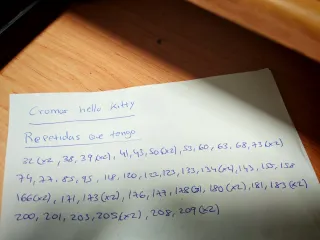 Cromos hello Kitty
Repetidas que tengo
32(x2, 38, 39(x2), 41, 43, 50(x2), 53, 60, 63, 68, 73(x2)
74, 77, 85, 95, 118, 120, 122, 123, 133, 134(x4), 143, 155, 158
166(x2), 171, 173(x2), 176, 177, 178(x2), 180(x2), 181, 183(x2)
200, 201, 203, 205(x2), 208, 209(x2)